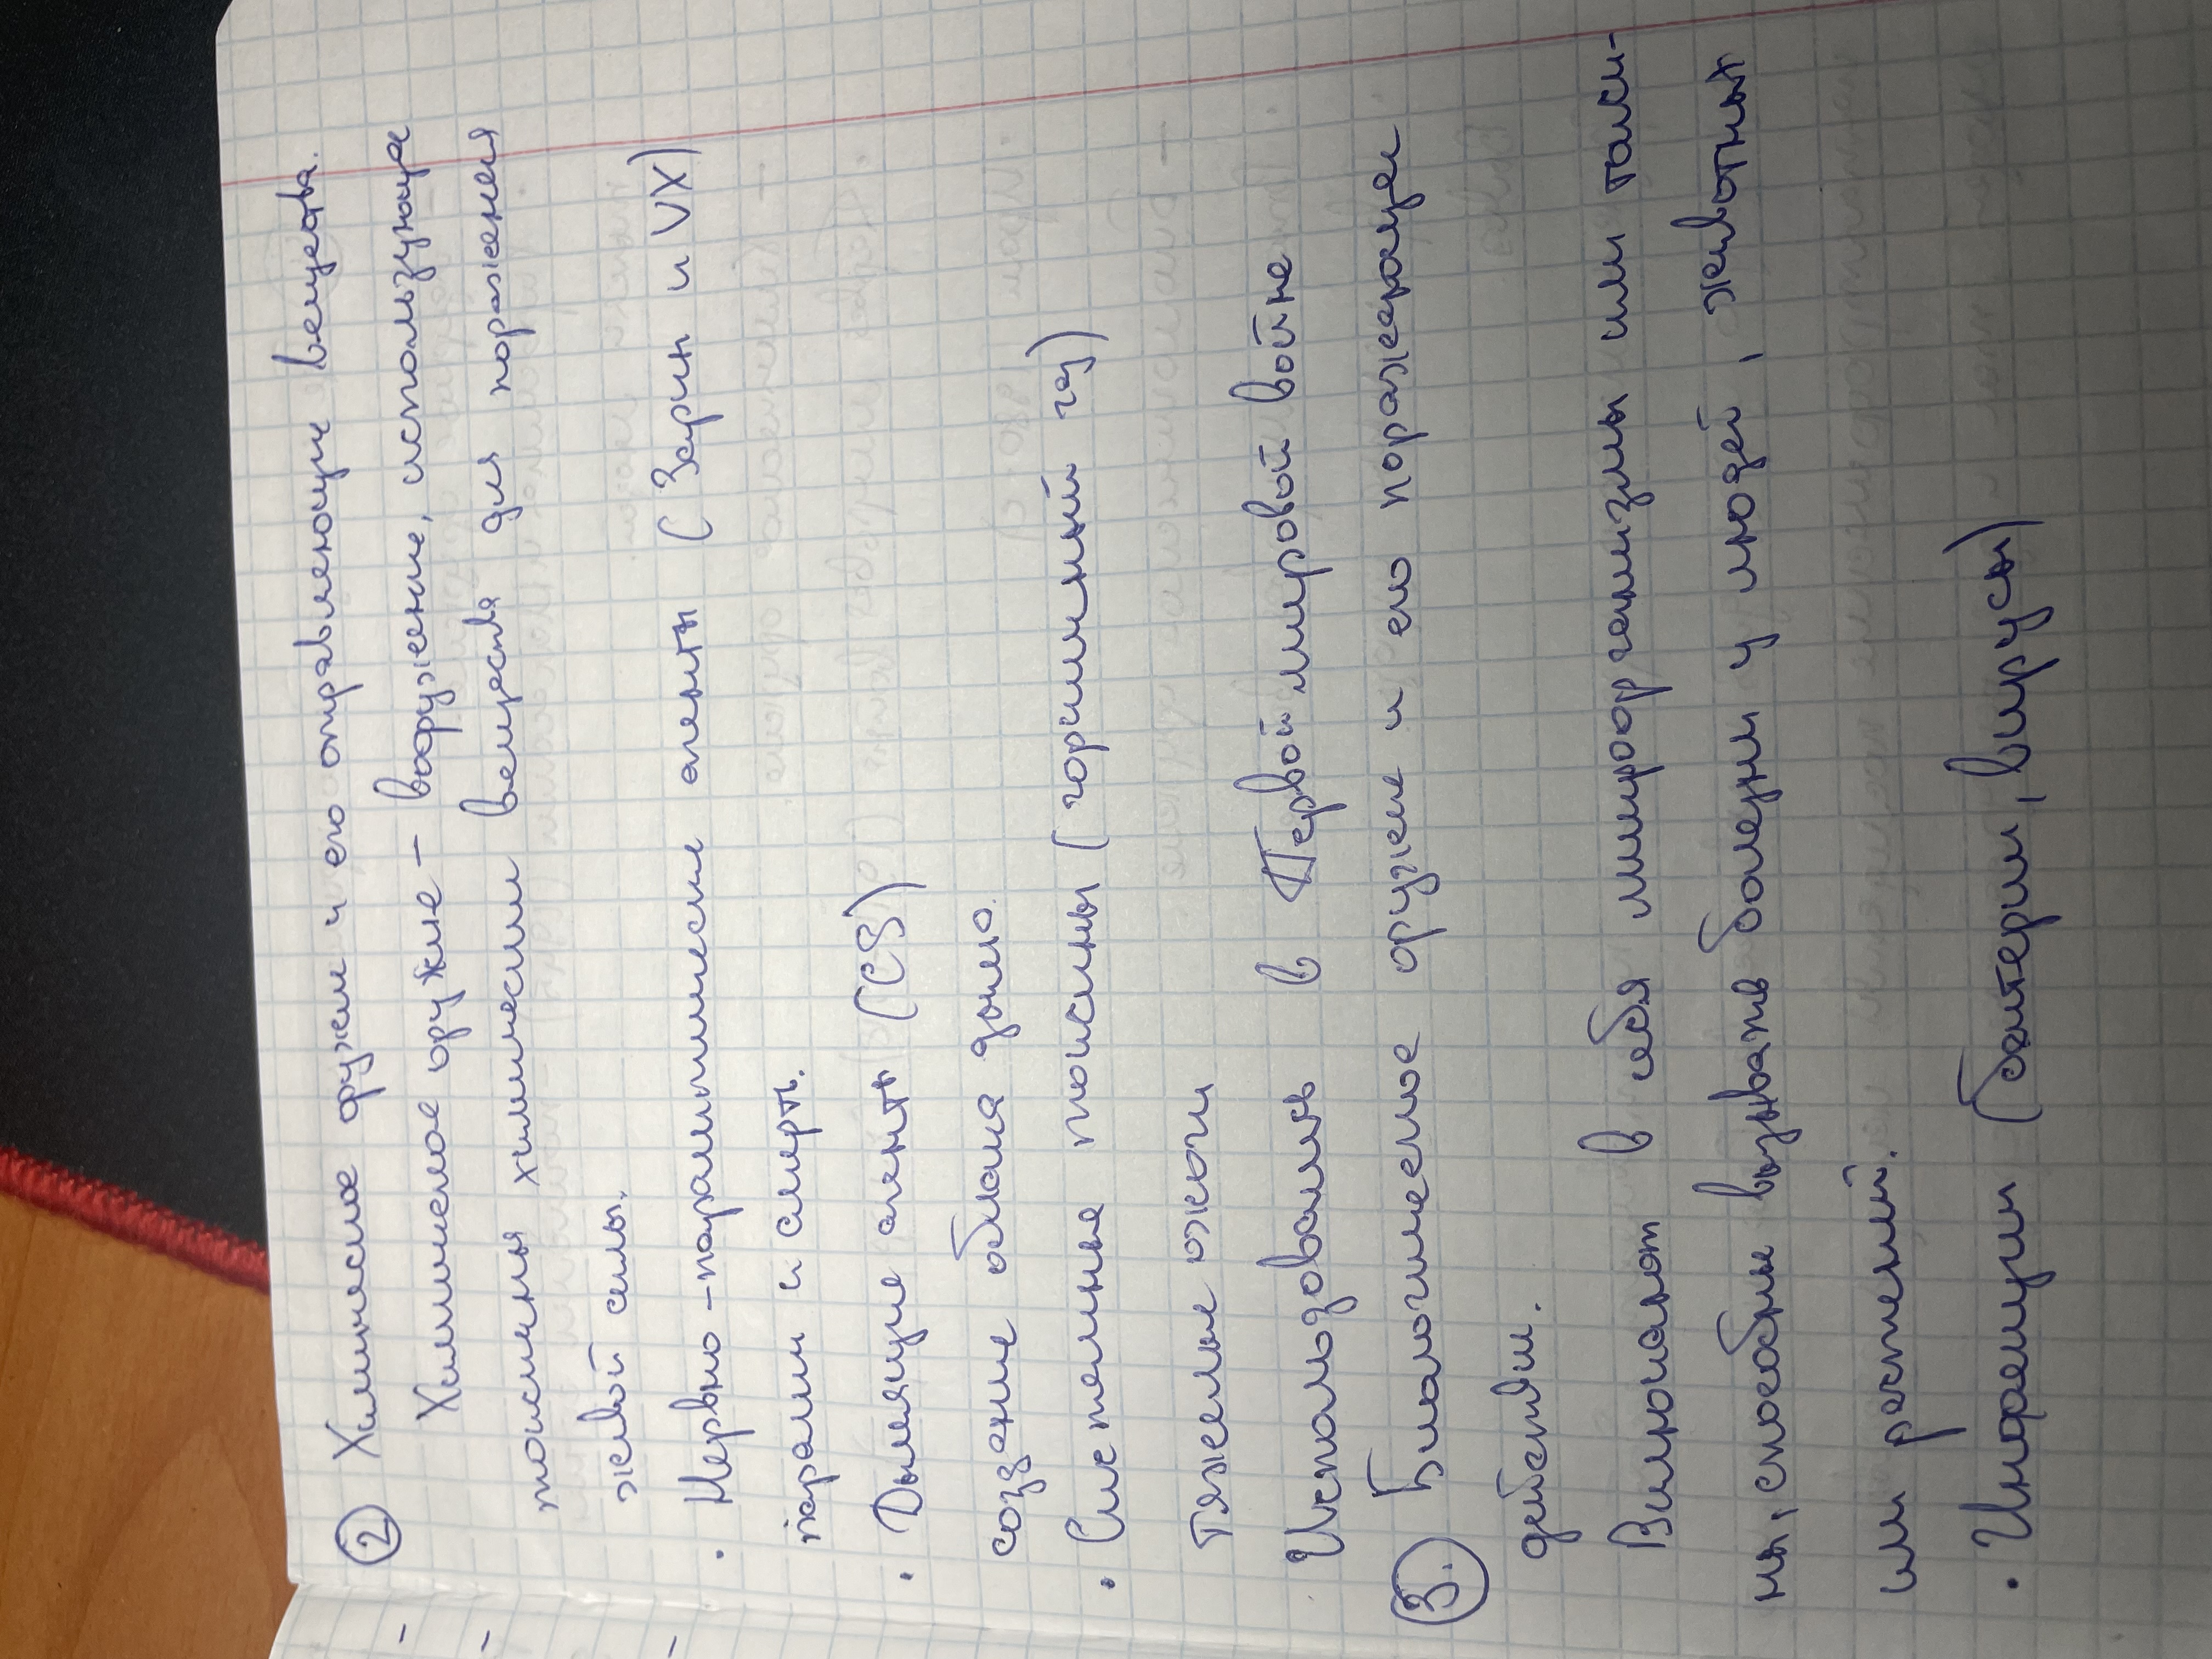 ② Химическое оружи и его отравляющи вещества.
Химическое оружие - вооружение, использующе
токсичны химически вещества для поражения
живой силы.
· Нервно-паралитические агенты (Зарин и VX)
парали и смерть.
· Дымящие агенты (CS)
создание облака дыма.
· Системные токсины (горчичный газ)
тяжелые ожоги
Использовались в Первой мировой войне
③. Биологическое оружие и его поражающие
действи.
Включают в себя микроорганизмы или токси-
ны, способные вызывать болезни у людей, животных
или растений.
· Инфекции (бактерии, вирусы)